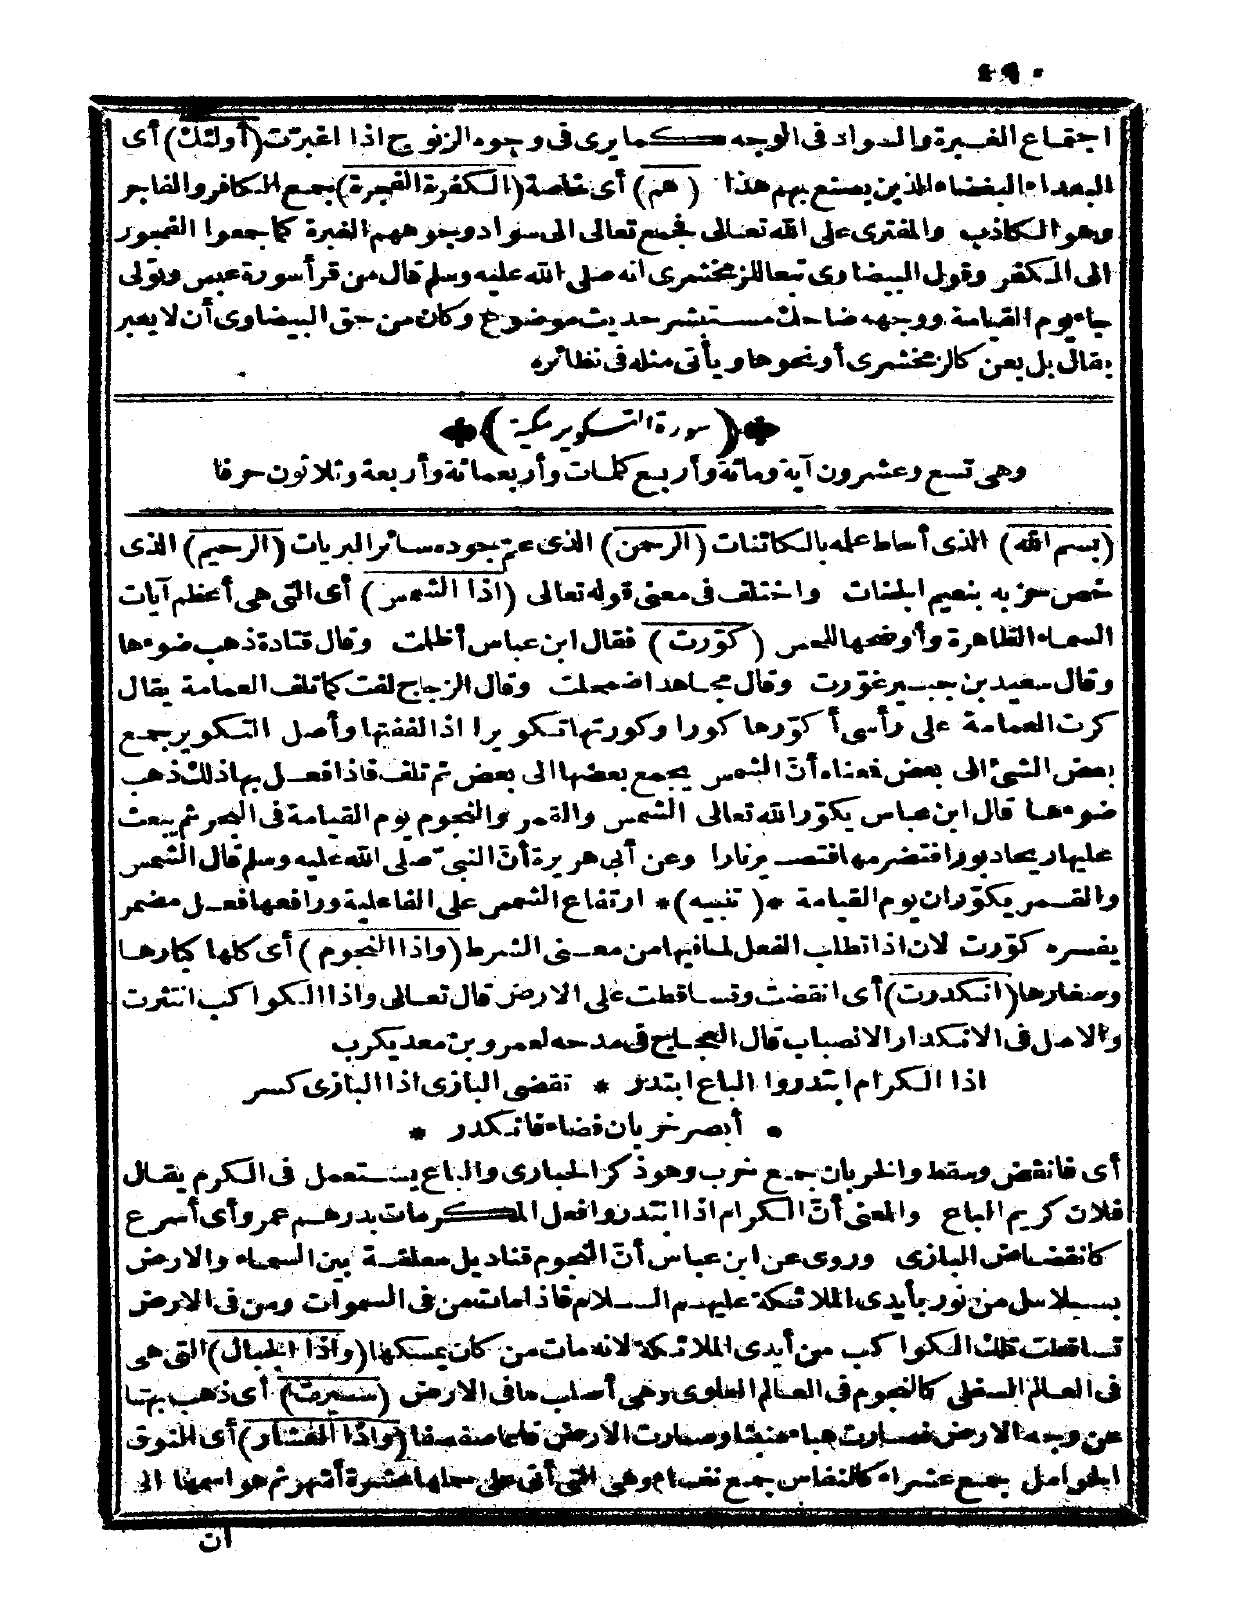 ٤٩٠
اجتماع الغبرة والسواد فى الوجه كما يرى فى وجوه الزنوج اذا اغبرّت (أولئك) أى
البعداء البغضاء الذين يصنع بهم هذا (هم) أى خاصة (الكفرة الفجرة) جمع الكافر والفاجر
وهو الكاذب والمفترى على الله تعالى فجمع تعالى الى سواد وجوههم الغبرة كما جمعوا الفجور
الى الكفر وقول البيضاوى تبعا للزمخشرى انه صلى الله عليه وسلم قال من قرأ سورة عبس وتولى
جاء يوم القيامة ووجهه ضاحك مستبشر حديث موضوع وكان من حق البيضاوى أن لا يعبر
بقال بل بعن كالزمخشرى أو نحوها ويأتى مثله فى نظائره
(سورة التكوير مكية)
وهى تسع وعشرون آية ومائة وأربع كلمات وأربعمائة وأربعة وثلاثون حرفا
(بسم الله) الذى أحاط علمه بالكائنات (الرحمن) الذى عمّ جوده سائر البريات (الرحيم) الذى
خص حزبه بنعيم الجنات واختلف فى معنى قوله تعالى (اذا الشمس) أى التى هى أعظم آيات
السماء الظاهرة وأوضحها للحس (كوّرت) فقال ابن عباس أظلمت وقال قتادة ذهب ضوءها
وقال سعيد بن جبير غوّرت وقال مجاهد اضمحلت وقال الزجاج لفت كما تلف العمامة يقال
كرت العمامة على رأسى أكوّرها كورا وكورتها تكويرا اذا لففتها وأصل التكوير جمع
بعض الشئ الى بعض فمعناه أنّ الشمس يجمع بعضها الى بعض ثم تلف فاذا فعل بها ذلك ذهب
ضوءها قال ابن عباس يكوّر الله تعالى الشمس والقمر والنجوم يوم القيامة فى البحر ثم يبعث
عليها ريحا دبورا فتضرمها فتصير نارا وعن أبى هريرة أنّ النبىّ صلى الله عليه وسلم قال الشمس
والقمر يكوّران يوم القيامة *(تنبيه)* ارتفاع الشمس على الفاعلية ورافعها فعل مضمر
يفسره كوّرت لان اذا تطلب الفعل لما فيها من معنى الشرط (واذا النجوم) أى كلها كبارها
وصغارها (انكدرت) أى انقضت وتساقطت على الارض قال تعالى واذا الكواكب انتثرت
والاصل فى الانكدار الانصباب قال العجاج فى مدحه لعمرو بن معديكرب
اذا الكرام ابتدروا الباع ابتدر * تقضى البازى اذا البازى كسر
* أبصر خربان فضاء فانكدر *
أى فانقض وسقط والخربان جمع خرب وهو ذكر الحبارى والباع يستعمل فى الكرم يقال
فلان كريم الباع والمعنى أنّ الكرام اذا ابتدروا فعل المكرمات بدرهم عمر وأى أسرع
كانقضاض البازى وروى عن ابن عباس أنّ النجوم قناديل معلقة بين السماء والارض
بسلاسل من نور بأيدى الملائكة عليهم السلام فاذا مات من فى السموات ومن فى الارض
تساقطت تلك الكواكب من أيدى الملائكة لانه مات من كان يمسكها (واذا الجبال) التى هى
فى العالم السفلى كالنجوم فى العالم العلوى وهى أصلب ما فى الارض (سيرت) أى ذهب بها
عن وجه الارض فصارت هباء منبثا وصارت الارض قاعا صفصفا (واذا العشار) أى النوق
الحوامل جمع عشراء كالنفاس جمع نفساء وهى التى أتى على حملها عشرة أشهر ثم هو اسمها الى
ان